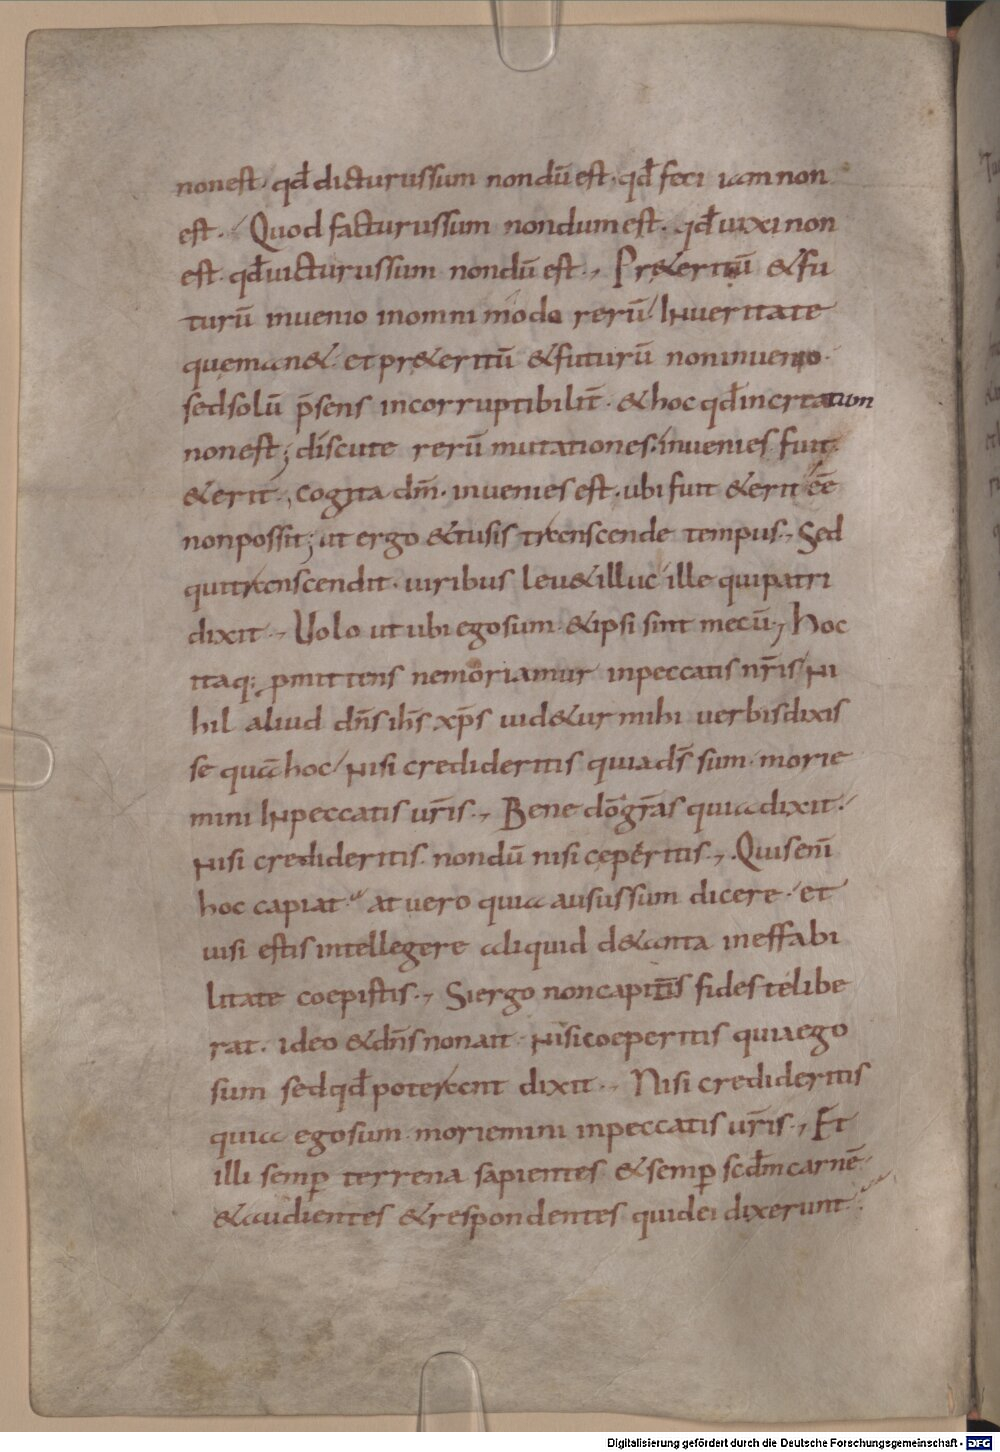 non est. qđ dicturus sum nondū est. qđ feci iam non
est. Quod facturus sum nondum est. qđ uixi non
est. qđ uicturus sum nondū est. Pr&eritū & fu
turū inuenio in omni modo rerū. In ueritate
quę man&. et pr&eritū & futurū non inuenio.
sed solū p̄sens incorruptibilit̄. & hoc qđ in creatum
non est; discute rerū mutationes. inuenies fuit
& erit. cogita dm̄. inuenies est. ubi fuit & erit ee̅
non possit; ut ergo & tu sis transcende tempus. Sed
qui transcendit. uiribus leu& illuc ille qui patri
dixit. Uolo ut ubi ego sum. & ipsi sint mecū; hoc
itaq; ꝓmittens ne moriamur in peccatis nr̄is. Ni
hil aliud dn̄s ih̄s xp̄s uid&ur mihi uerbis dixis
se quā hoc. Nisi credideritis quia ds̄ sum. morie
mini In peccatis ur̄is. Bene dō gr̄as quia dixit.
Nisi credideritis. nondū nisi ceperitis. Quis enī
hoc capiat. at uero quia ausus sum dicere. et
uisi estis intellegere aliquid de tanta ineffabi
litate coepistis. Si ergo non capitis fides te libe
rat. ideo & dn̄s non ait. Nisi coeperitis quia ego
sum sed qđ poterant dixit. Nisi credideritis
quia ego sum. moriemini in peccatis ur̄is. Et
illi semꝑ terrena sapientes & semꝑ scdm̄ carnē
& audientes & respondentes quid ei dixerunt.
Digitalisierung gefördert durch die Deutsche Forschungsgemeinschaft - DFG